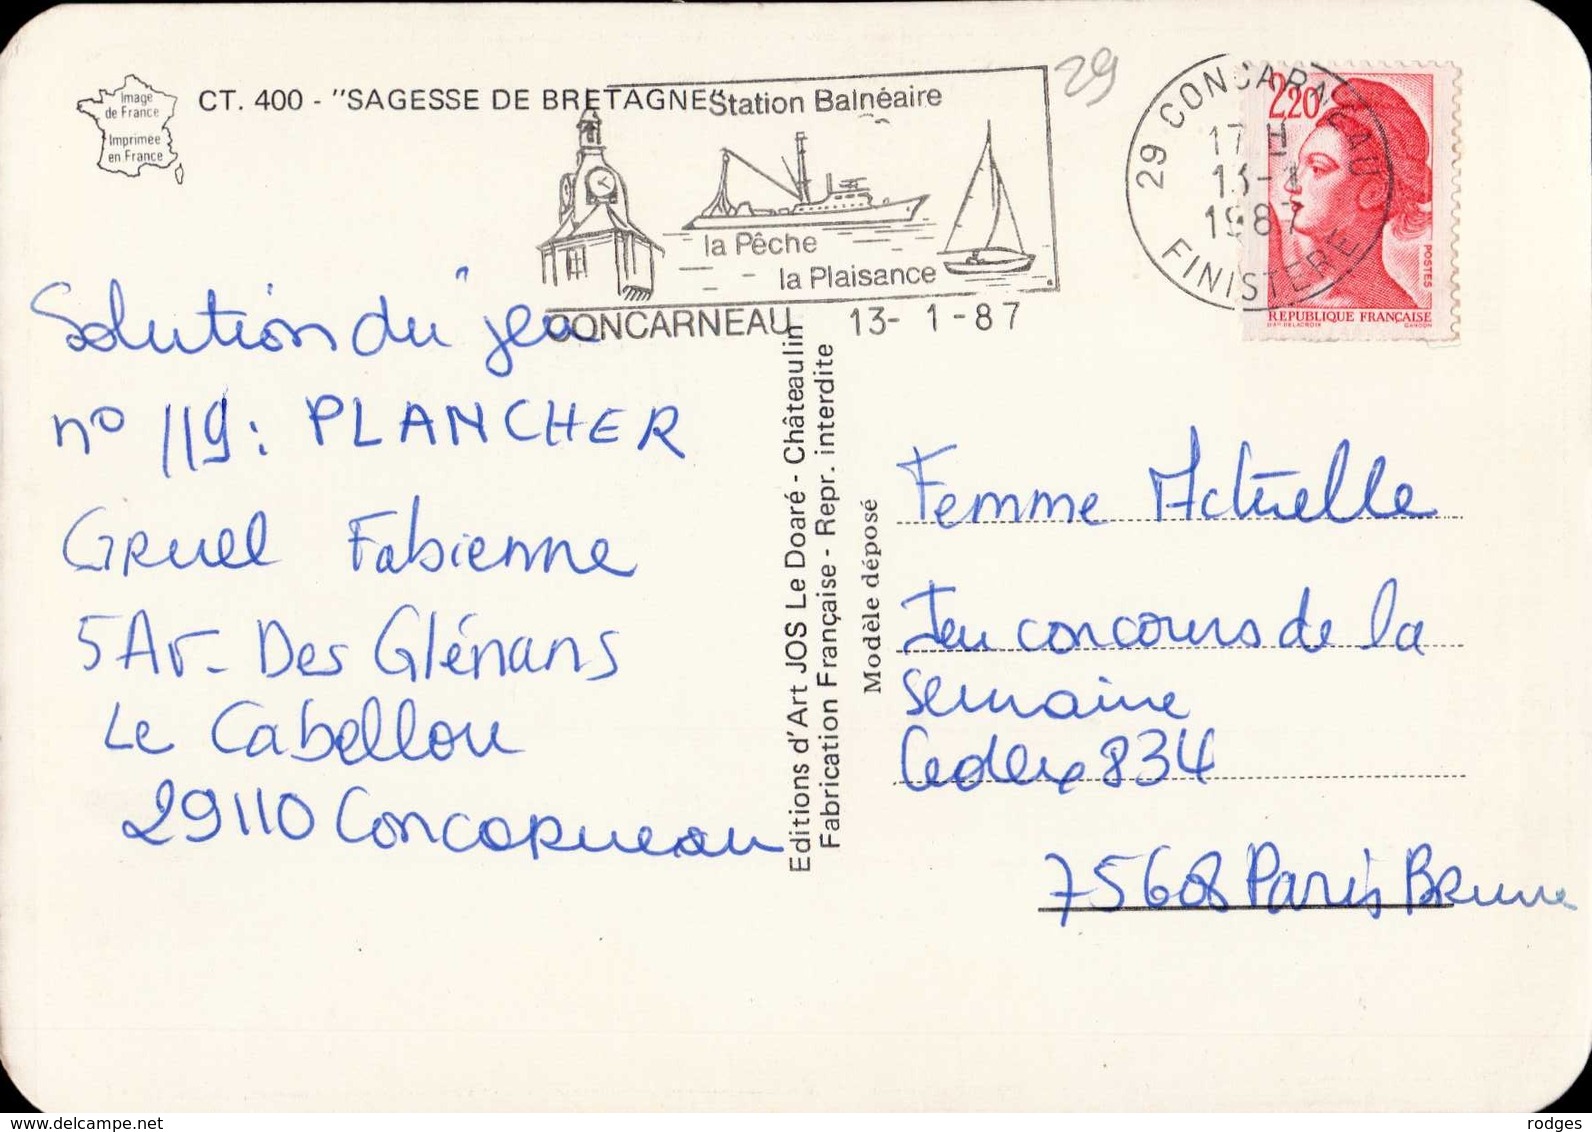 Image
de France
Imprimée
en France
CT. 400 - "SAGESSE DE BRETAGNE"
Station Balnéaire
la Pêche
la Plaisance
CONCARNEAU 13-1-87
29
29 CONCARNEAU
17 H
13-1
1987
FINISTERE
2,20
POSTES
REPUBLIQUE FRANÇAISE
D'AP. DELACROIX GANDON
Solution du jeu
n° 119: PLANCHER
Gruel Fabienne
5 Av- Des Glénans
Le Cabellou
29110 Concarneau
Editions d'Art JOS Le Doaré - Châteaulin
Fabrication Française - Repr. interdite
Modèle déposé
Femme Actuelle
Jeu concours de la
semaine
Cedex 834
75608 Paris Brune
rodges